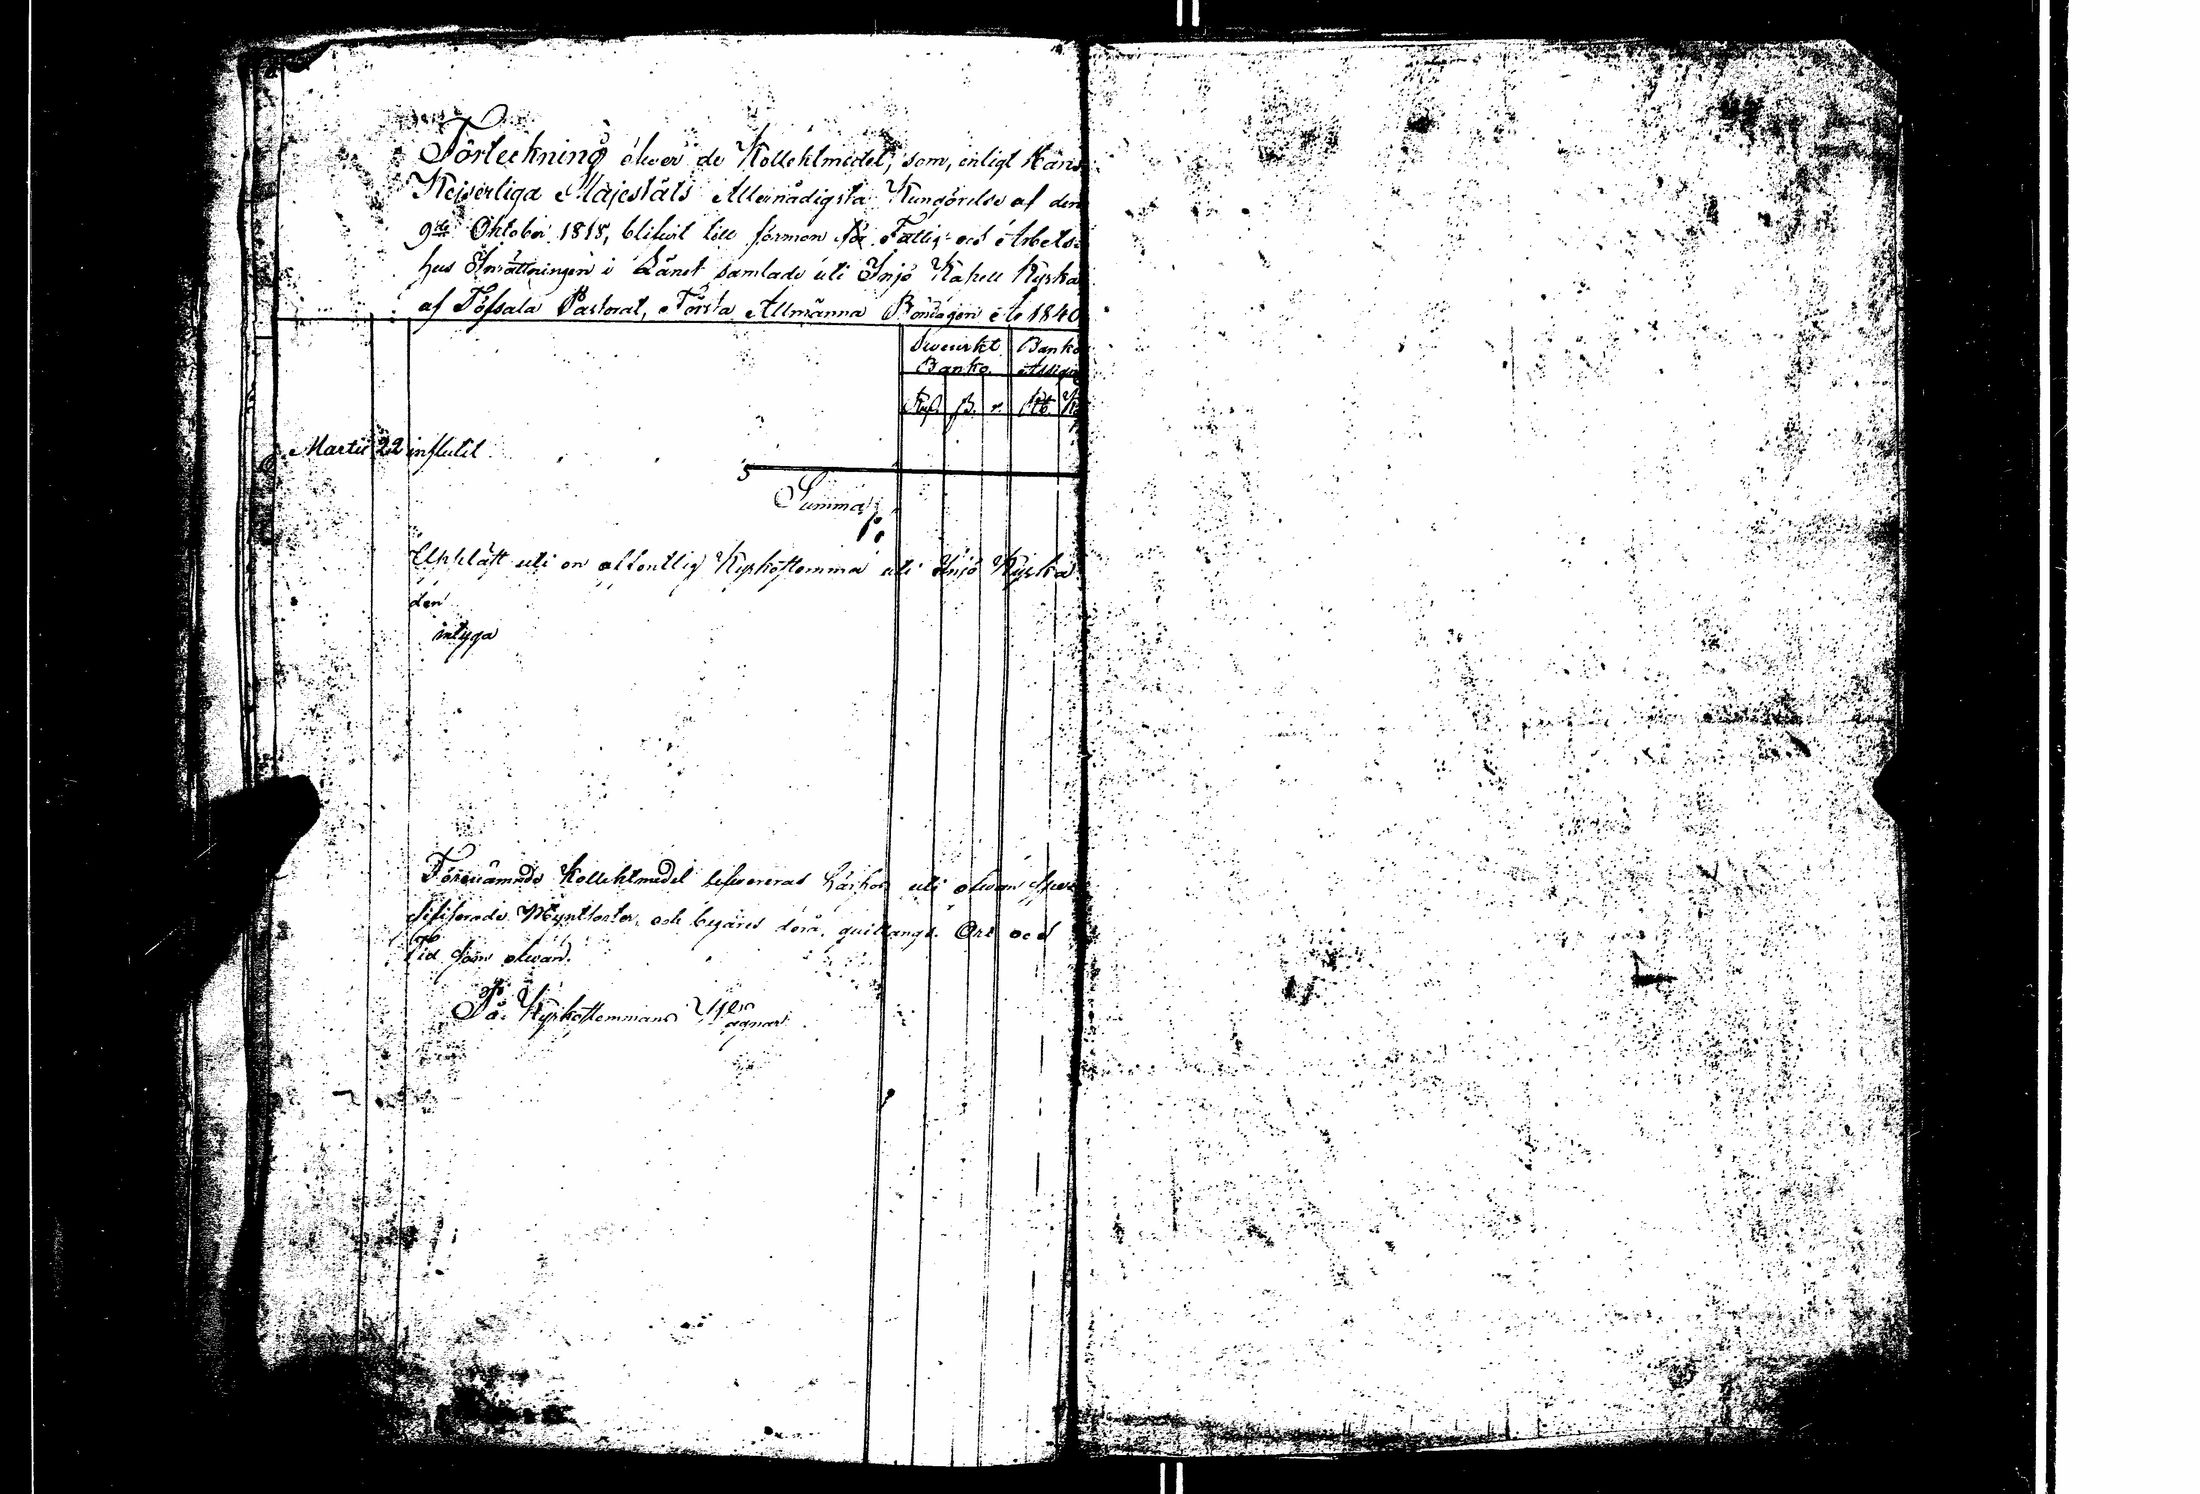 Förteckning öfwer de Kollektmedel, som, enligt Hans
Kejserliga Majestäts Allernådigsta Kungörelse af den
9de Oktober 1818, blifwit till förmon för Fattig- och Arbets-
hus Inrättningen i Länet samlade uti Injö Kapell Kyrka
af Töfsala Pastorat, Första Allmänna Böndagen år 1840
Swenskt Banko
Banko Assign
Rd. ß. r. Rb. K
Martii 22 influtit
Summa
Uppläst uti en offentlig Kyrkostemma uti Injö Kyrka
den
intyga
Förenämnde Kollektmedel lefwereras härhos uti ofwan spec
sifiserade Myntsorter, och begäres derå quittangs. Ort och
tid som ofwan.
På Kyrkostemmans Wägnar